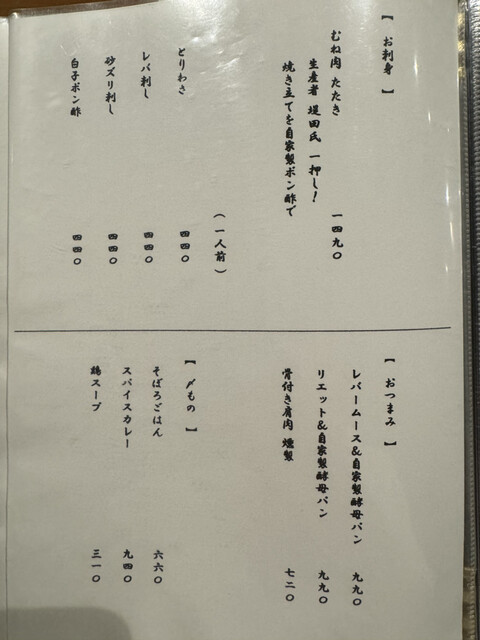 【 お刺身 】
むね肉 たたき 一四九〇
生産者 堤田氏 一押し！
焼き立てを自家製ポン酢で
（一人前）
とりわさ 四四〇
レバ刺し 四四〇
砂ズリ刺し 四四〇
白子ポン酢 四四〇
【 おつまみ 】
レバームース&自家製酵母パン 九九〇
リエット&自家製酵母パン 九九〇
骨付き肩肉 燻製 七二〇
【 〆もの 】
そぼろごはん 六六〇
スパイスカレー 九四〇
鶏スープ 三一〇